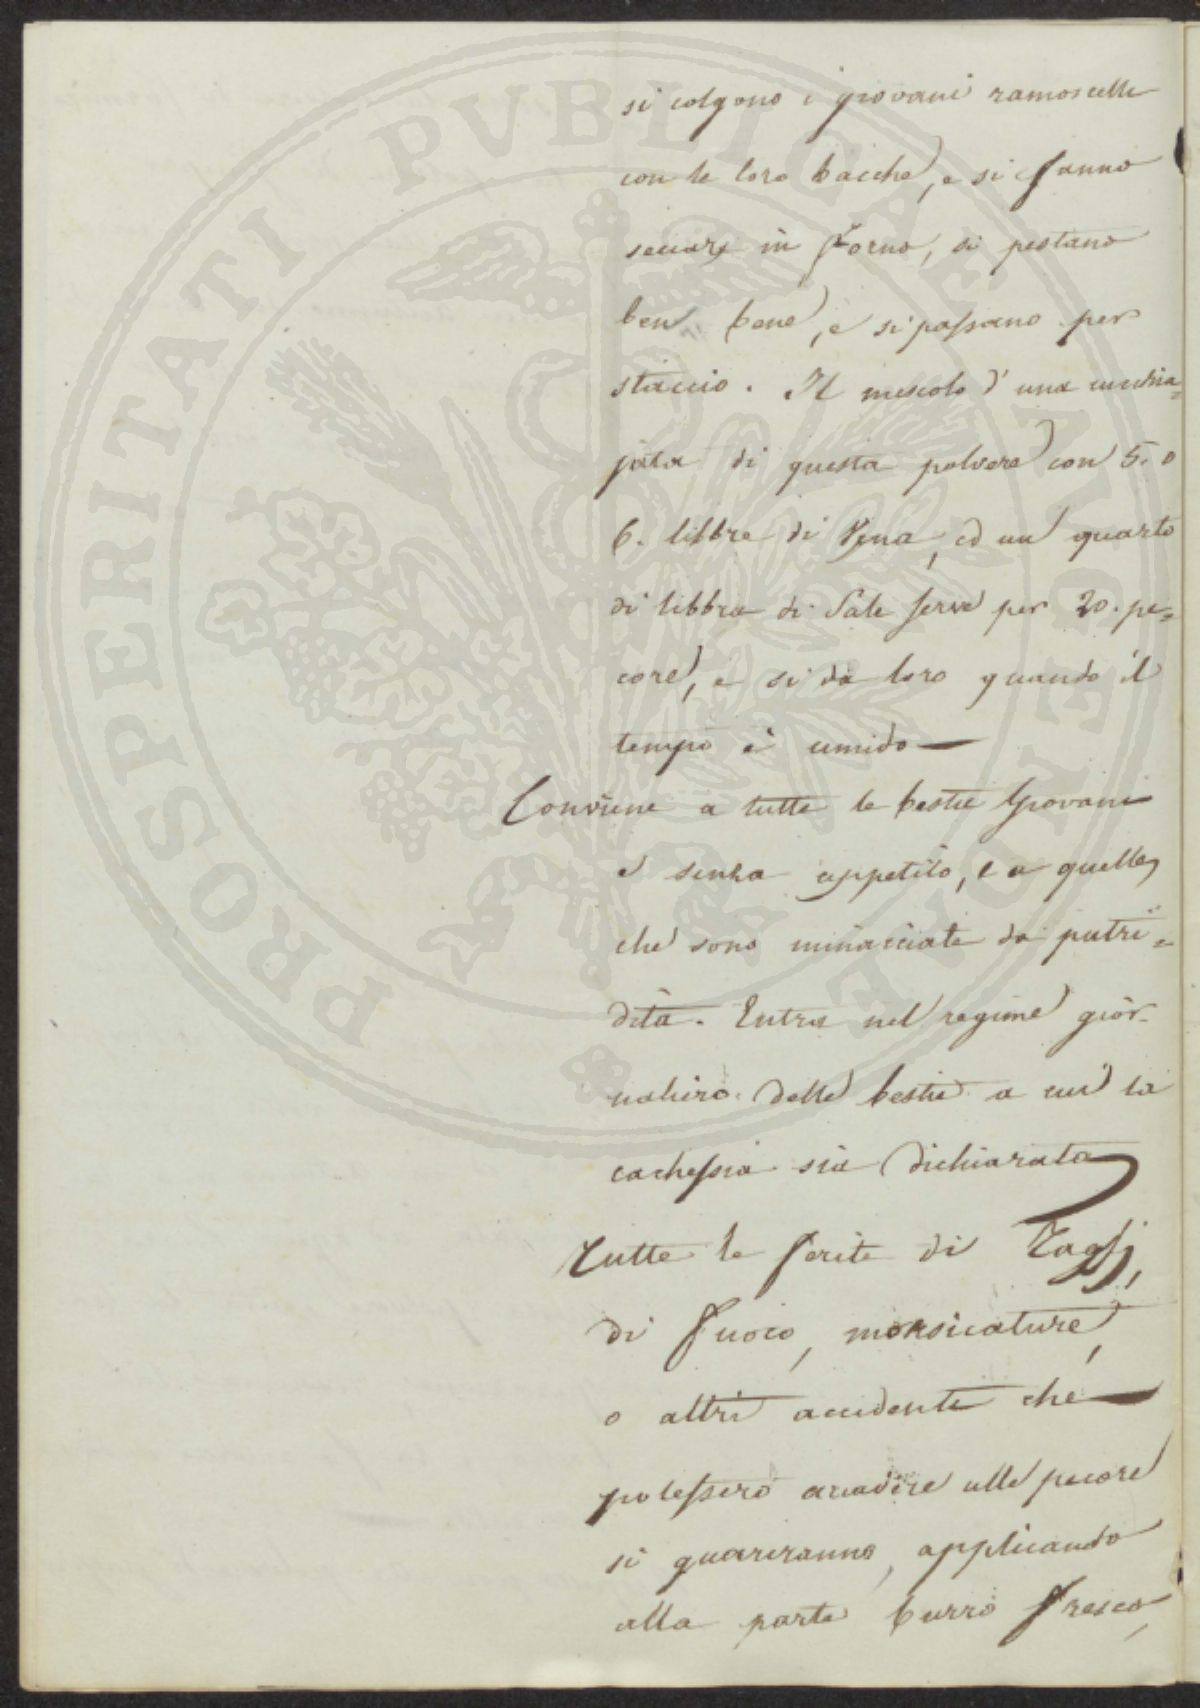 si colgono i giovani ramoscelli
con le loro bacche, e si fanno
seccare in forno, si pestano
ben bene, e si passano per
staccio. Il mescolo d'una cucchia=
jata di questa polvere con 5. o
6. libbre di Vena, ed un quarto
di libbra di Sale serve per 20. pe=
core, e si dà loro quando il
tempo è umido —
Conviene a tutte le bestie Giovani
e senza appetito, e a quelle,
che sono minacciate da putri=
dità. Entra nel regime gior-
naliero delle bestie a cui la
cachessia sia dichiarata
Tutte le ferite di Taglj,
di fuoco, morsicature,
o altri accidenti che —
potessero accadire alle pecore
si guariranno, applicando
alla parte burro fresco,
PROSPERITATI PVBLICAE AVGENDAE